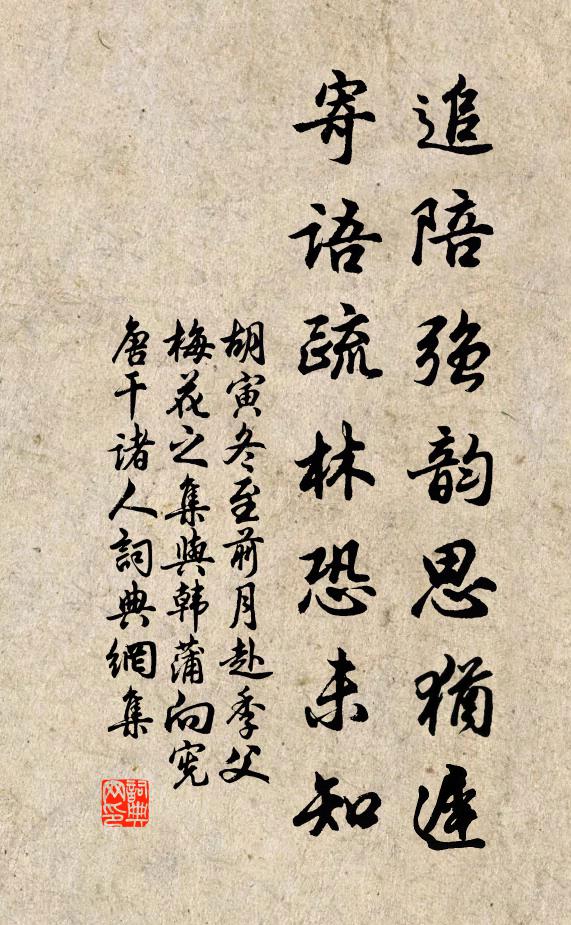 追陪强韵思犹遲
寄语疏林恐未知
胡寅冬至前月赴季父
梅花之集與韩蒲向宪
唐干诸人詞典網集
詞典网印